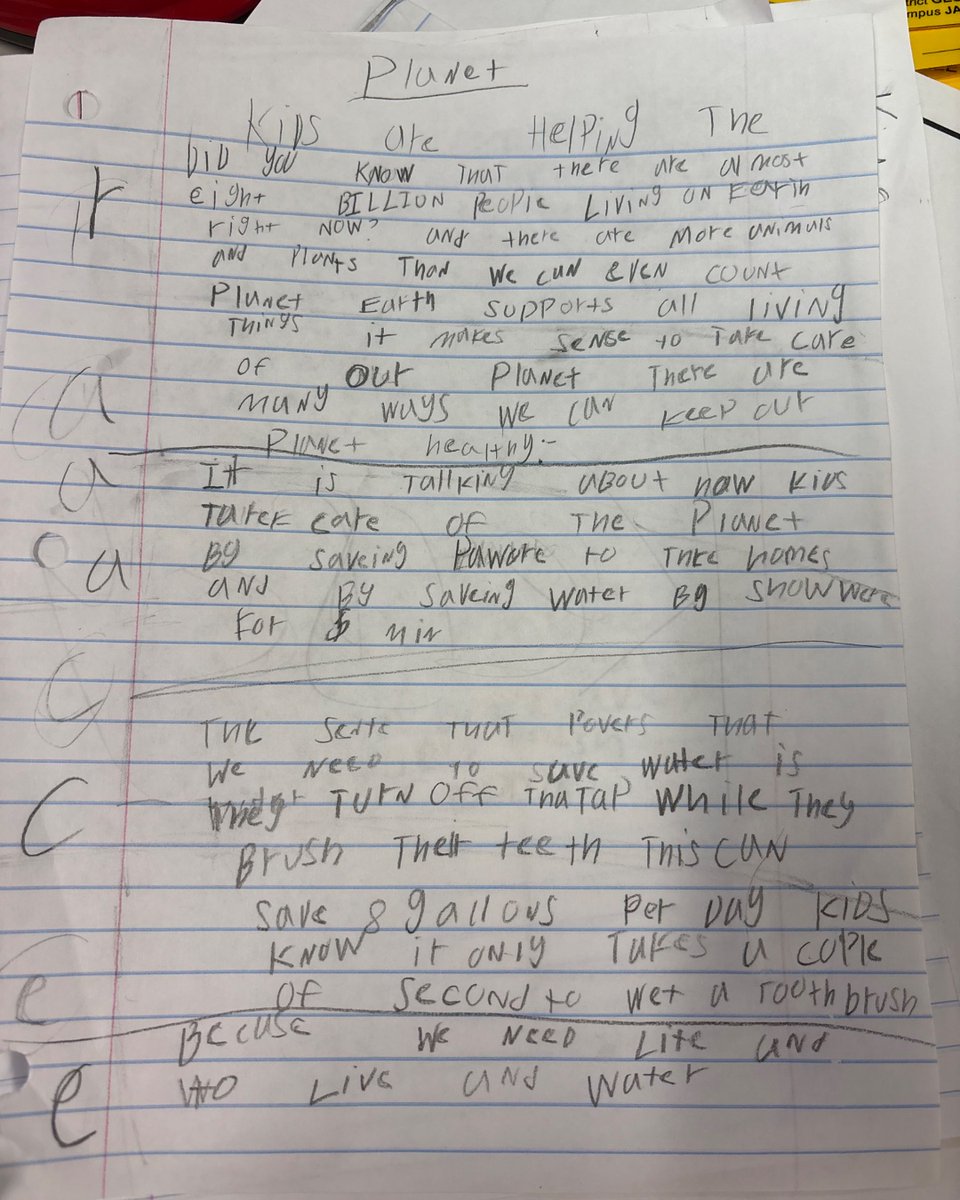 Planet
Kids are Helping The
r
DiD you know That there are almost
eight BILLION PeoPle Living on Earth
right NOW? and there are More animals
and Plants Than We can even count
Planet Earth supports all living
Things it makes sense to Take care
a
of our Planet There are
many ways we can keep our
Planet healthy.-
a
It is Tallking about how kids
Tarek care of The Planet
a
By saveing Paware to Thre homes
and By saveing water By showwere
For 5 min
c
The sente That Povers That
We Need To save water is
c
they Turn off Tha Tap while They
Brush Their teeth This can
save 8 gallons Per Day Kids
know it only Takes a cople
e
of second to wet a Toothbrush
Becuse We Need Life and
e
to Live and Water
ct GE
mpus JA